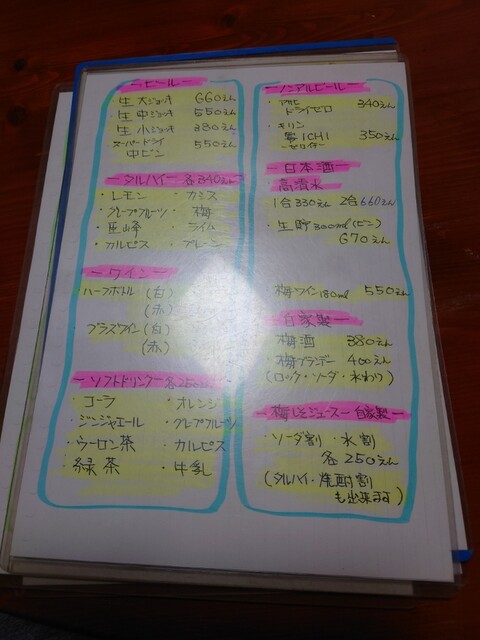 ービールー
・生大ジョッキ 660えん
・生中ジョッキ 550えん
・生小ジョッキ 380えん
・スーパードライ
中ビン 550えん
ータルハイー 各340えん
・レモン ・カシス
・グレープフルーツ ・梅
・巨峰 ・ライム
・カルピス ・プレーン
ーワインー
・ハーフボトル (白)
(赤)
グラスワイン (白)
(赤)
ーソフトドリンクー 各250
・コーラ ・オレンジ
・ジンジャエール ・グレープフルーツ
・ウーロン茶 ・カルピス
・緑茶 ・牛乳
ーノンアルビールー
・アサヒ
ドライゼロ 340えん
・キリン
零ICHI 350えん
ーゼロイチー
ー日本酒ー
・高清水
1合330えん 2合660えん
・生貯300ml(ビン)
670えん
梅ワイン180ml 550えん
ー自家製ー
・梅酒 380えん
・梅ブランデー 400えん
(ロック・ソーダ・水わり)
ー梅しそジュースー自家製ー
・ソーダ割・水割
各250えん
(タルハイ・焼酎割
も出来ます)